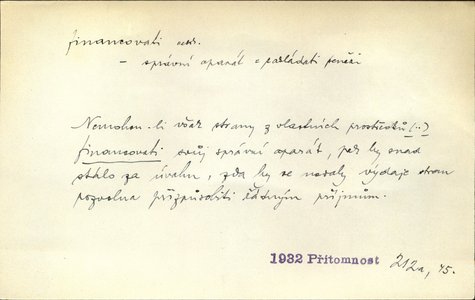 financovati
– správní aparát
Nemohou-li však strany z vlastních prostředků (..)
financovati svůj správní aparát, pak by snad
stálo za úvahu, zda by se nedaly výdaje stran
pozvolna přizpůsobiti řádným příjmům.
1932 Přítomnost 212a, 45.